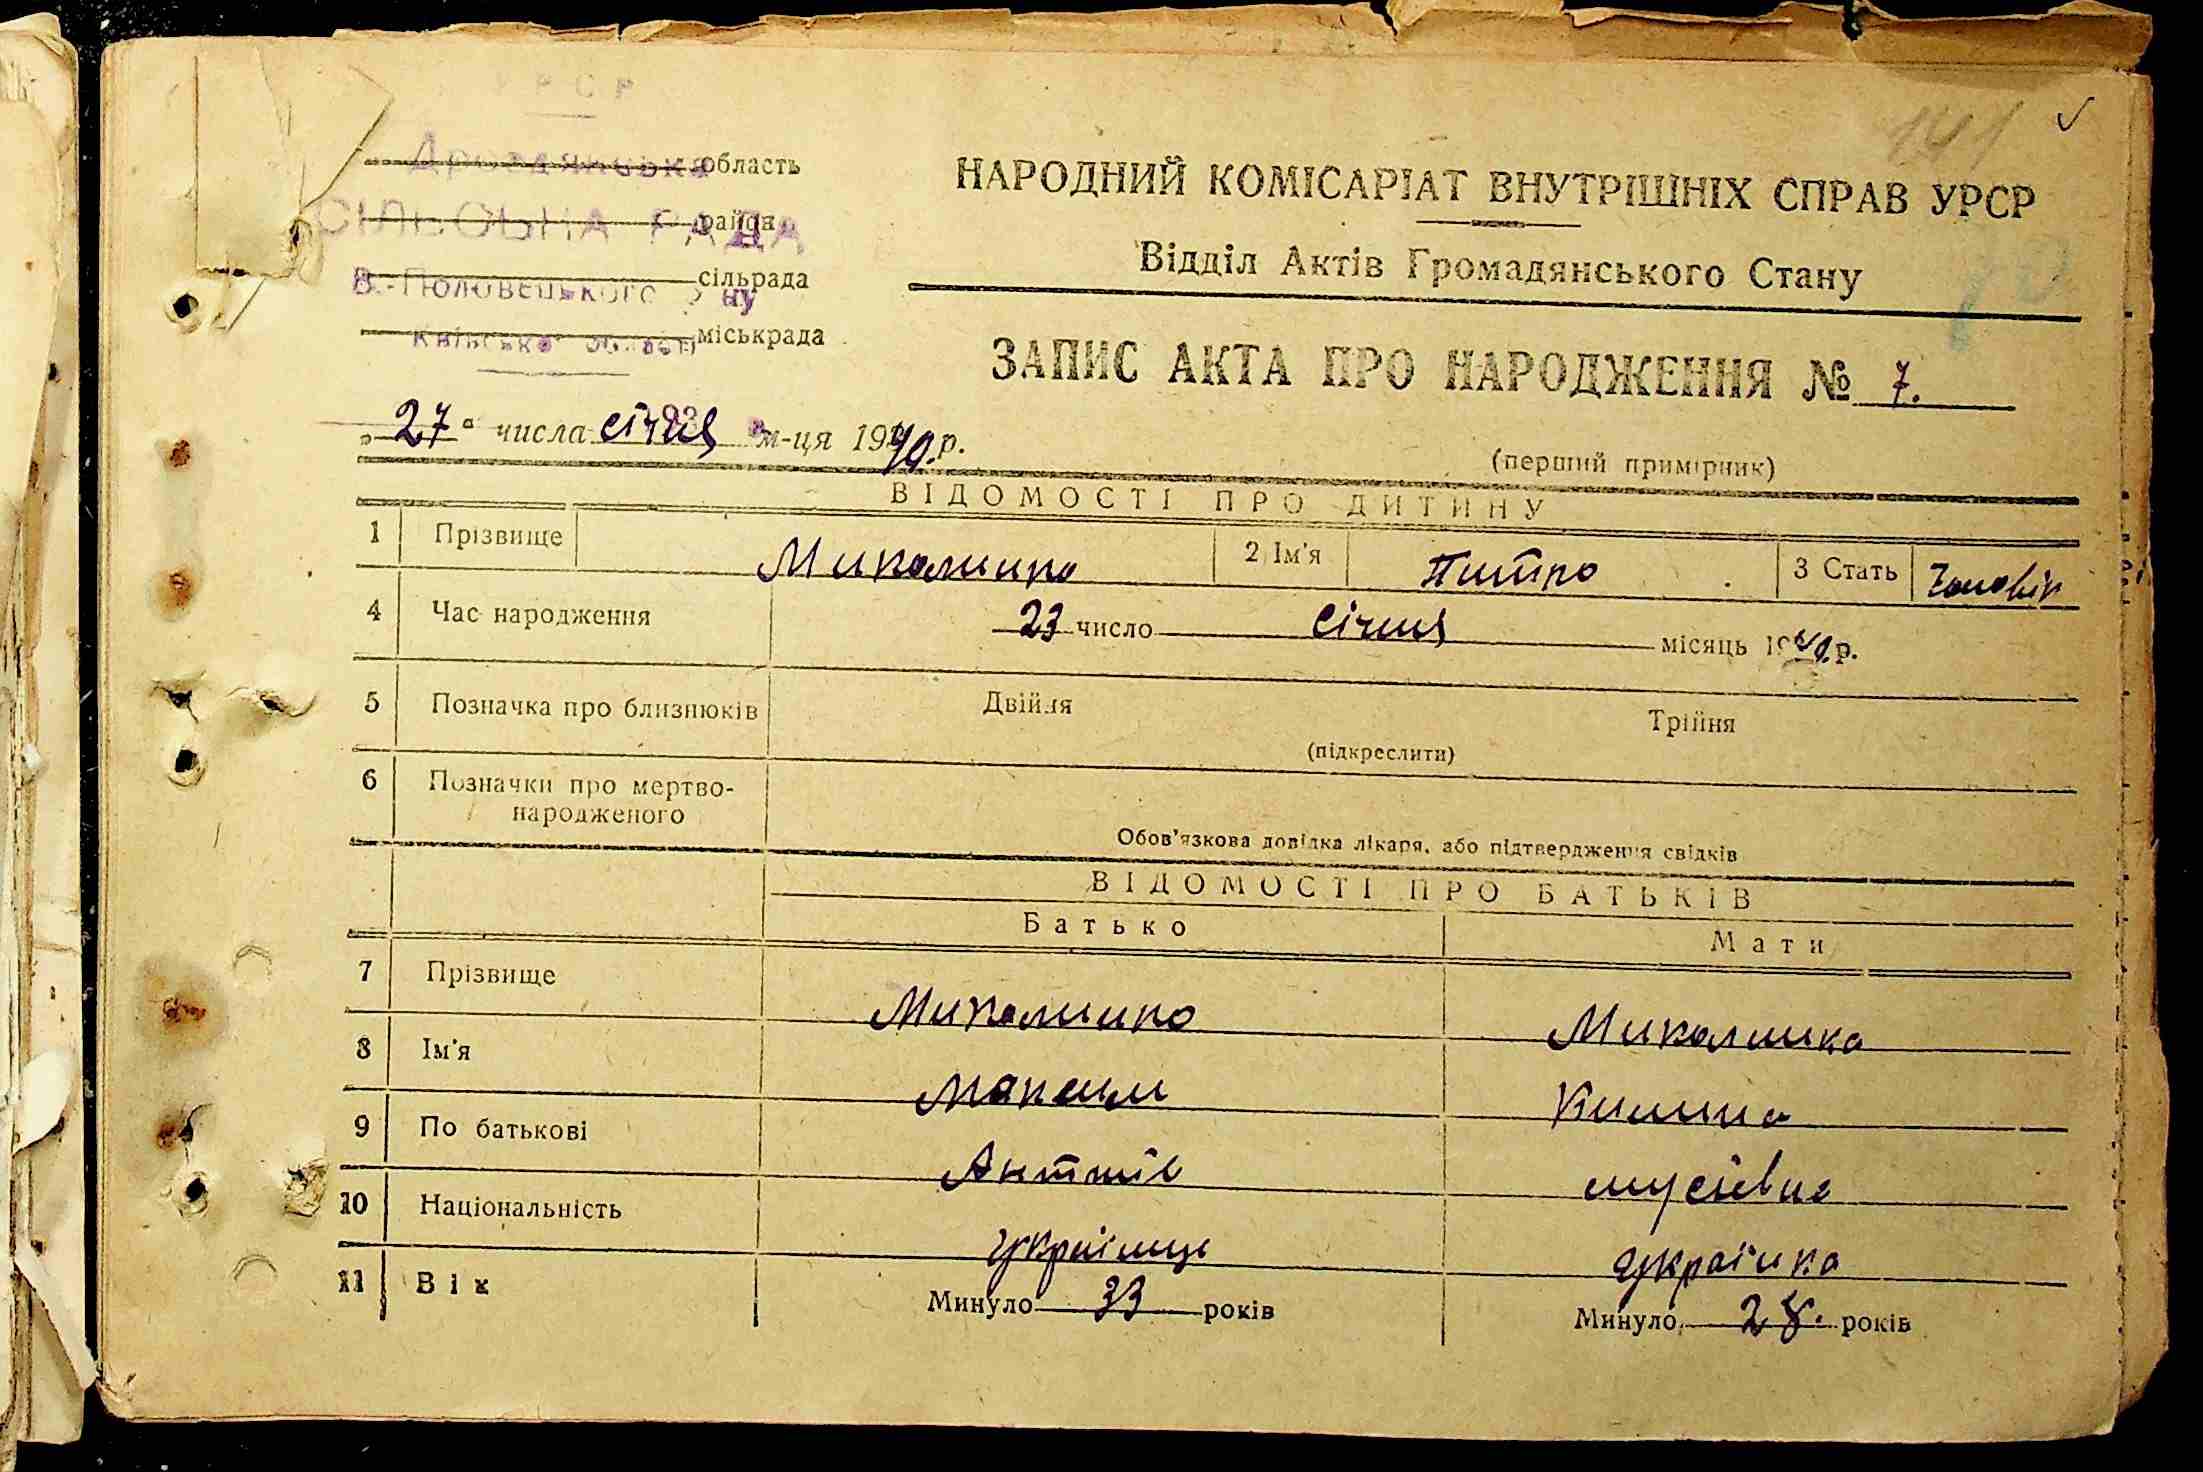 УРСР
Дроздянська область
СІЛЬСЬКА РАДА район
В.-Половецького р ну сільрада
Київської області міськрада
141
НАРОДНИЙ КОМІСАРІАТ ВНУТРІШНІХ СПРАВ УРСР
Відділ Актів Громадянського Стану
ЗАПИС АКТА ПРО НАРОДЖЕННЯ № 7.
„27" числа січня м-ця 1940.р.
(перший примірник)
ВІДОМОСТІ ПРО ДИТИНУ
1 Прізвище Миколишко 2 Ім'я Питро 3 Стать Чоловік
4 Час народження 23 число січня місяць 1940.р.
5 Позначка про близнюків Двійля Трійня
(підкреслити)
6 Позначки про мертво-
народженого
Обов'язкова довідка лікаря, або підтвердження свідків
ВІДОМОСТІ ПРО БАТЬКІВ
Батько Мати
7 Прізвище Миколишко Миколишка
8 Ім'я Максим
9 По батькові мусієвна
10 Національність українць українка
11 Вік Минуло 33 років Минуло 28. років